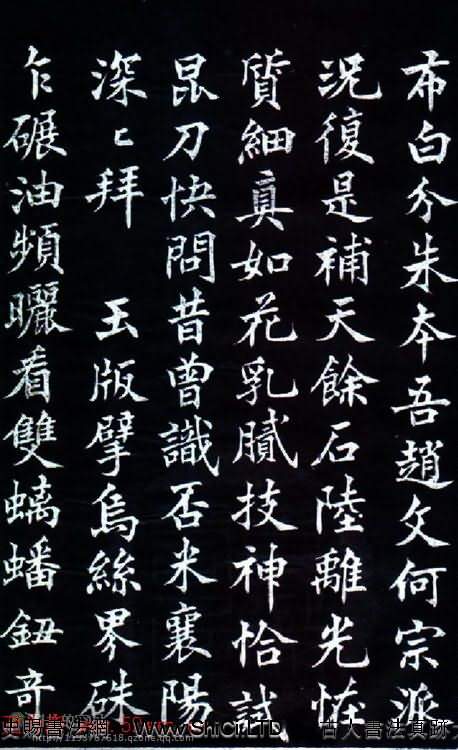 布白分朱夲吾趙文何宗派
況復是補天餘石陸離光恠
質細真如花乳膩技神恰試
昆刀快問昔曾識否米襄陽
深〻拜 玉版擘烏絲界硃
乍碾油頻曬看雙螭蟠鈕奇
史賜書法網
古人書法真跡
http://1193787618.qzone.qq.com